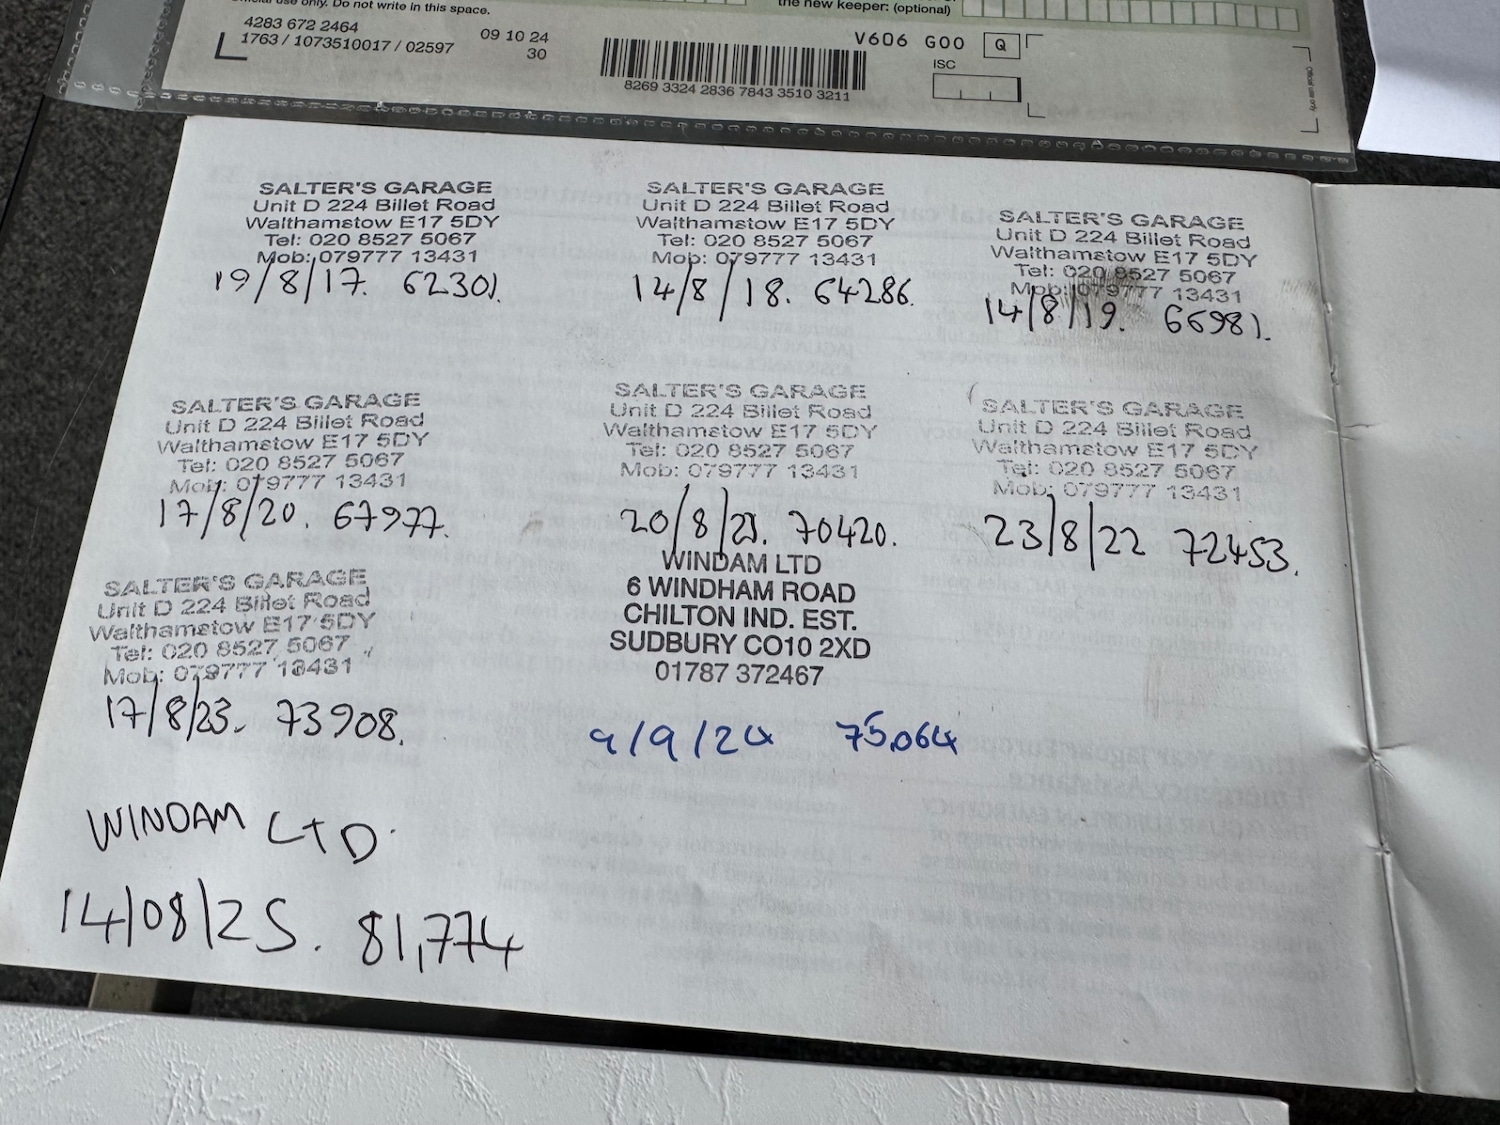 Official use only. Do not write in this space.
the new keeper: (optional)
4283 672 2464
1763 / 1073510017 / 02597
09 10 24
30
8269 3324 2836 7843 3510 3211
V606 G00 Q
ISC
Official use only
SALTER'S GARAGE
Unit D 224 Billet Road
Walthamstow E17 5DY
Tel: 020 8527 5067
Mob: 079777 13431
19/8/17. 62301.
SALTER'S GARAGE
Unit D 224 Billet Road
Walthamstow E17 5DY
Tel: 020 8527 5067
Mob: 079777 13431
14/8/18. 64286.
SALTER'S GARAGE
Unit D 224 Billet Road
Walthamstow E17 5DY
Tel: 020 8527 5067
Mob: 079777 13431
14/8/19. 66981.
SALTER'S GARAGE
Unit D 224 Billet Road
Walthamstow E17 5DY
Tel: 020 8527 5067
Mob: 079777 13431
17/8/20. 67977.
SALTER'S GARAGE
Unit D 224 Billet Road
Walthamstow E17 5DY
Tel: 020 8527 5067
Mob: 079777 13431
20/8/21. 70420.
SALTER'S GARAGE
Unit D 224 Billet Road
Walthamstow E17 5DY
Tel: 020 8527 5067
Mob: 079777 13431
23/8/22 72453.
SALTER'S GARAGE
Unit D 224 Billet Road
Walthamstow E17 5DY
Tel: 020 8527 5067
Mob: 079777 13431
17/8/23. 73908.
WINDAM LTD
6 WINDHAM ROAD
CHILTON IND. EST.
SUDBURY CO10 2XD
01787 372467
9/9/24 75,064
WINDAM LTD.
14/08/25. 81,774